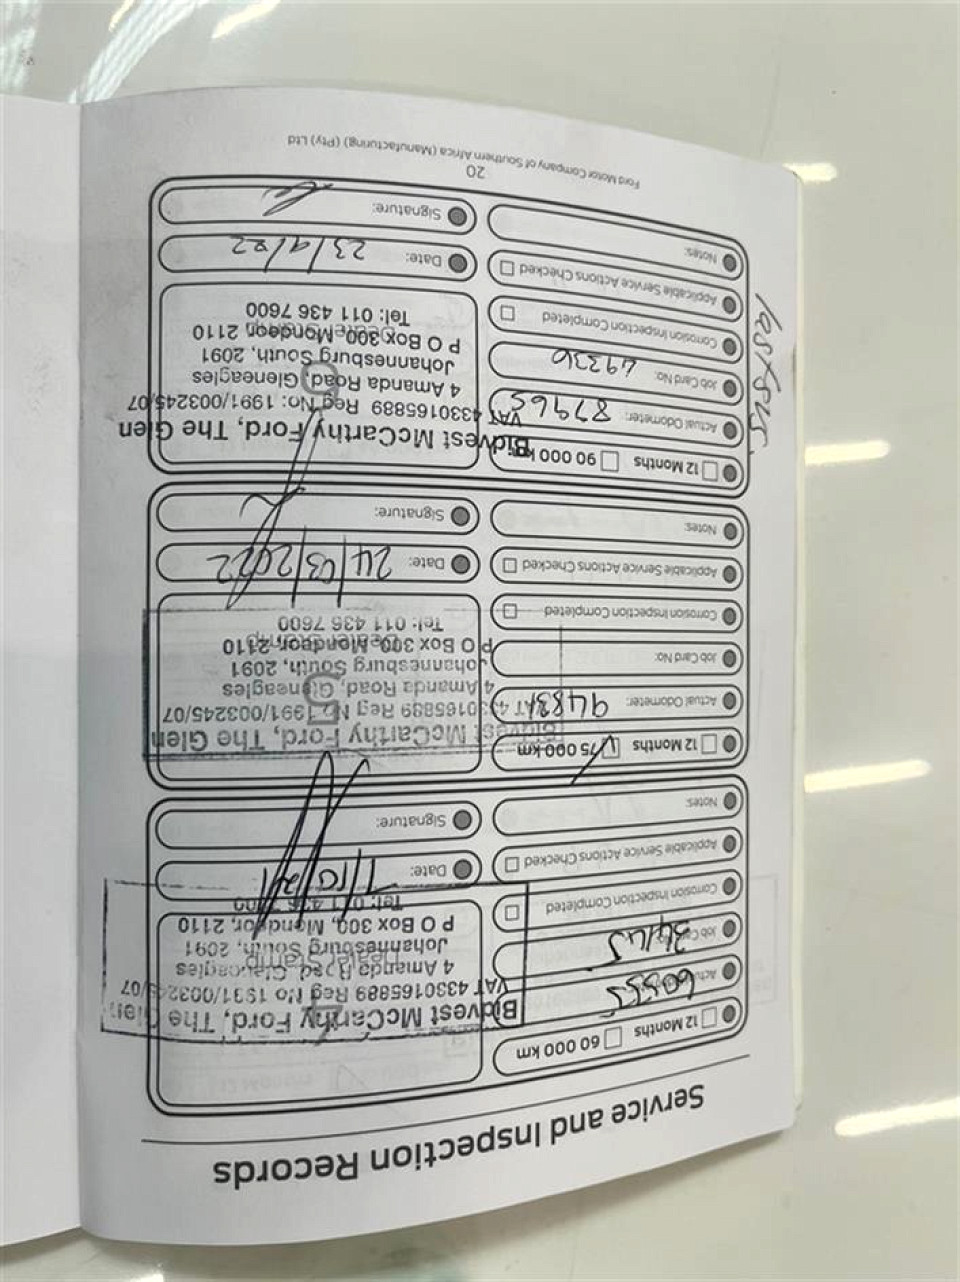 Service and Inspection Records
12 Months
60 000 km
60555
Job Card No:
34145
Corrosion Inspection Completed
Applicable Service Actions Checked
Notes:
Bidvest McCarthy Ford, The Glen
VAT 4330165889 Reg No 1991/003245/07
4 Amanda Road, Gleneagles
Johannesburg South, 2091
Dealer Stamp
P O Box 300, Mondeor, 2110
Tel: 011 436 7600
Date: 7/10/21
Signature:
12 Months
75 000 km
Actual Odometer:
Job Card No:
Corrosion Inspection Completed
Applicable Service Actions Checked
Notes:
5
Bidvest McCarthy Ford, The Glen
VAT 4330165889 Reg No 1991/003245/07
4 Amanda Road, Gleneagles
Johannesburg South, 2091
Dealer Stamp
P O Box 300, Mondeor, 2110
Tel: 011 436 7600
Date: 24/03/2022
Signature:
12 Months
90 000 km
Actual Odometer: 87965
Job Card No: 49336
Corrosion Inspection Completed
Applicable Service Actions Checked
Notes:
Bidvest McCarthy Ford, The Glen
VAT 4330165889 Reg No: 1991/003245/07
4 Amanda Road, Gleneagles
Johannesburg South, 2091
P O Box 300, Mondeor, 2110
Dealer Stamp
Tel: 011 436 7600
Date: 23/9/22
Signature:
20
Ford Motor Company of Southern Africa (Manufacturing) (Pty) Ltd